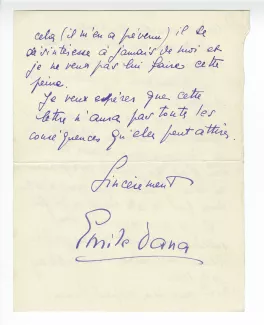 cela (il m'en a prévenu) il se
désintéresse à jamais de moi et
je ne veux pas lui faire cette
peine.
Je veux espérer que cette
lettre n'aura pas toute les
conséquences qu'elle peut attirer.
Sincèrement
Emile Dana